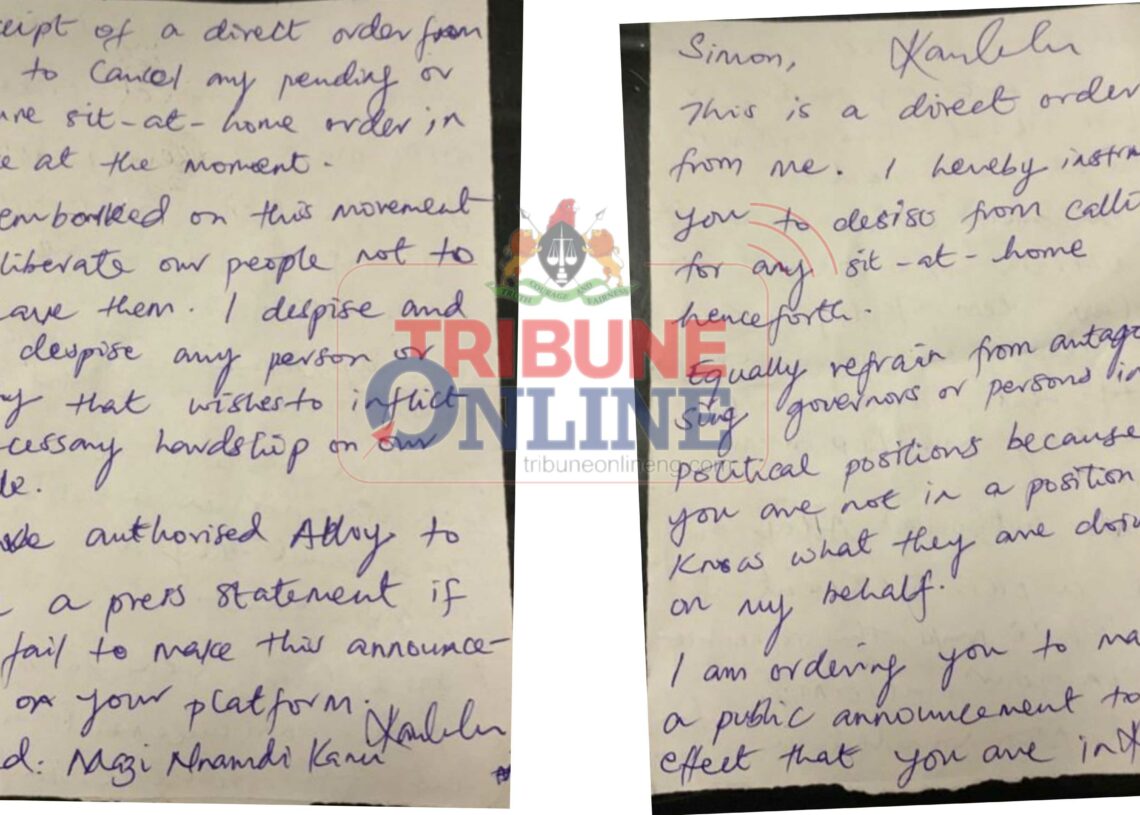 Simon,
This is a direct order
from me. I hereby instru
you to desist from calli
for any sit-at-home
henceforth.
Equally refrain from antago
sing governors or persons in
political positions because
you are not in a position
know what they are doin
on my behalf.
I am ordering you to ma
a public announcement to
effect that you are in
eipt of a direct order from
to cancel any pending or
sit-at-home order in
e at the moment.
embarked on this movement
liberate our people not to
ave them. I despise and
despise any person or
y that wishes to inflict
cessary hardship on our
le.
authorised Alloy to
a press statement if
fail to make this announce-
on your platform.
d: Mazi Nnamdi Kanu
TRUTH COURAGE AND FAIRNESS
TRIBUNE
ONLINE
tribuneonlineng.com